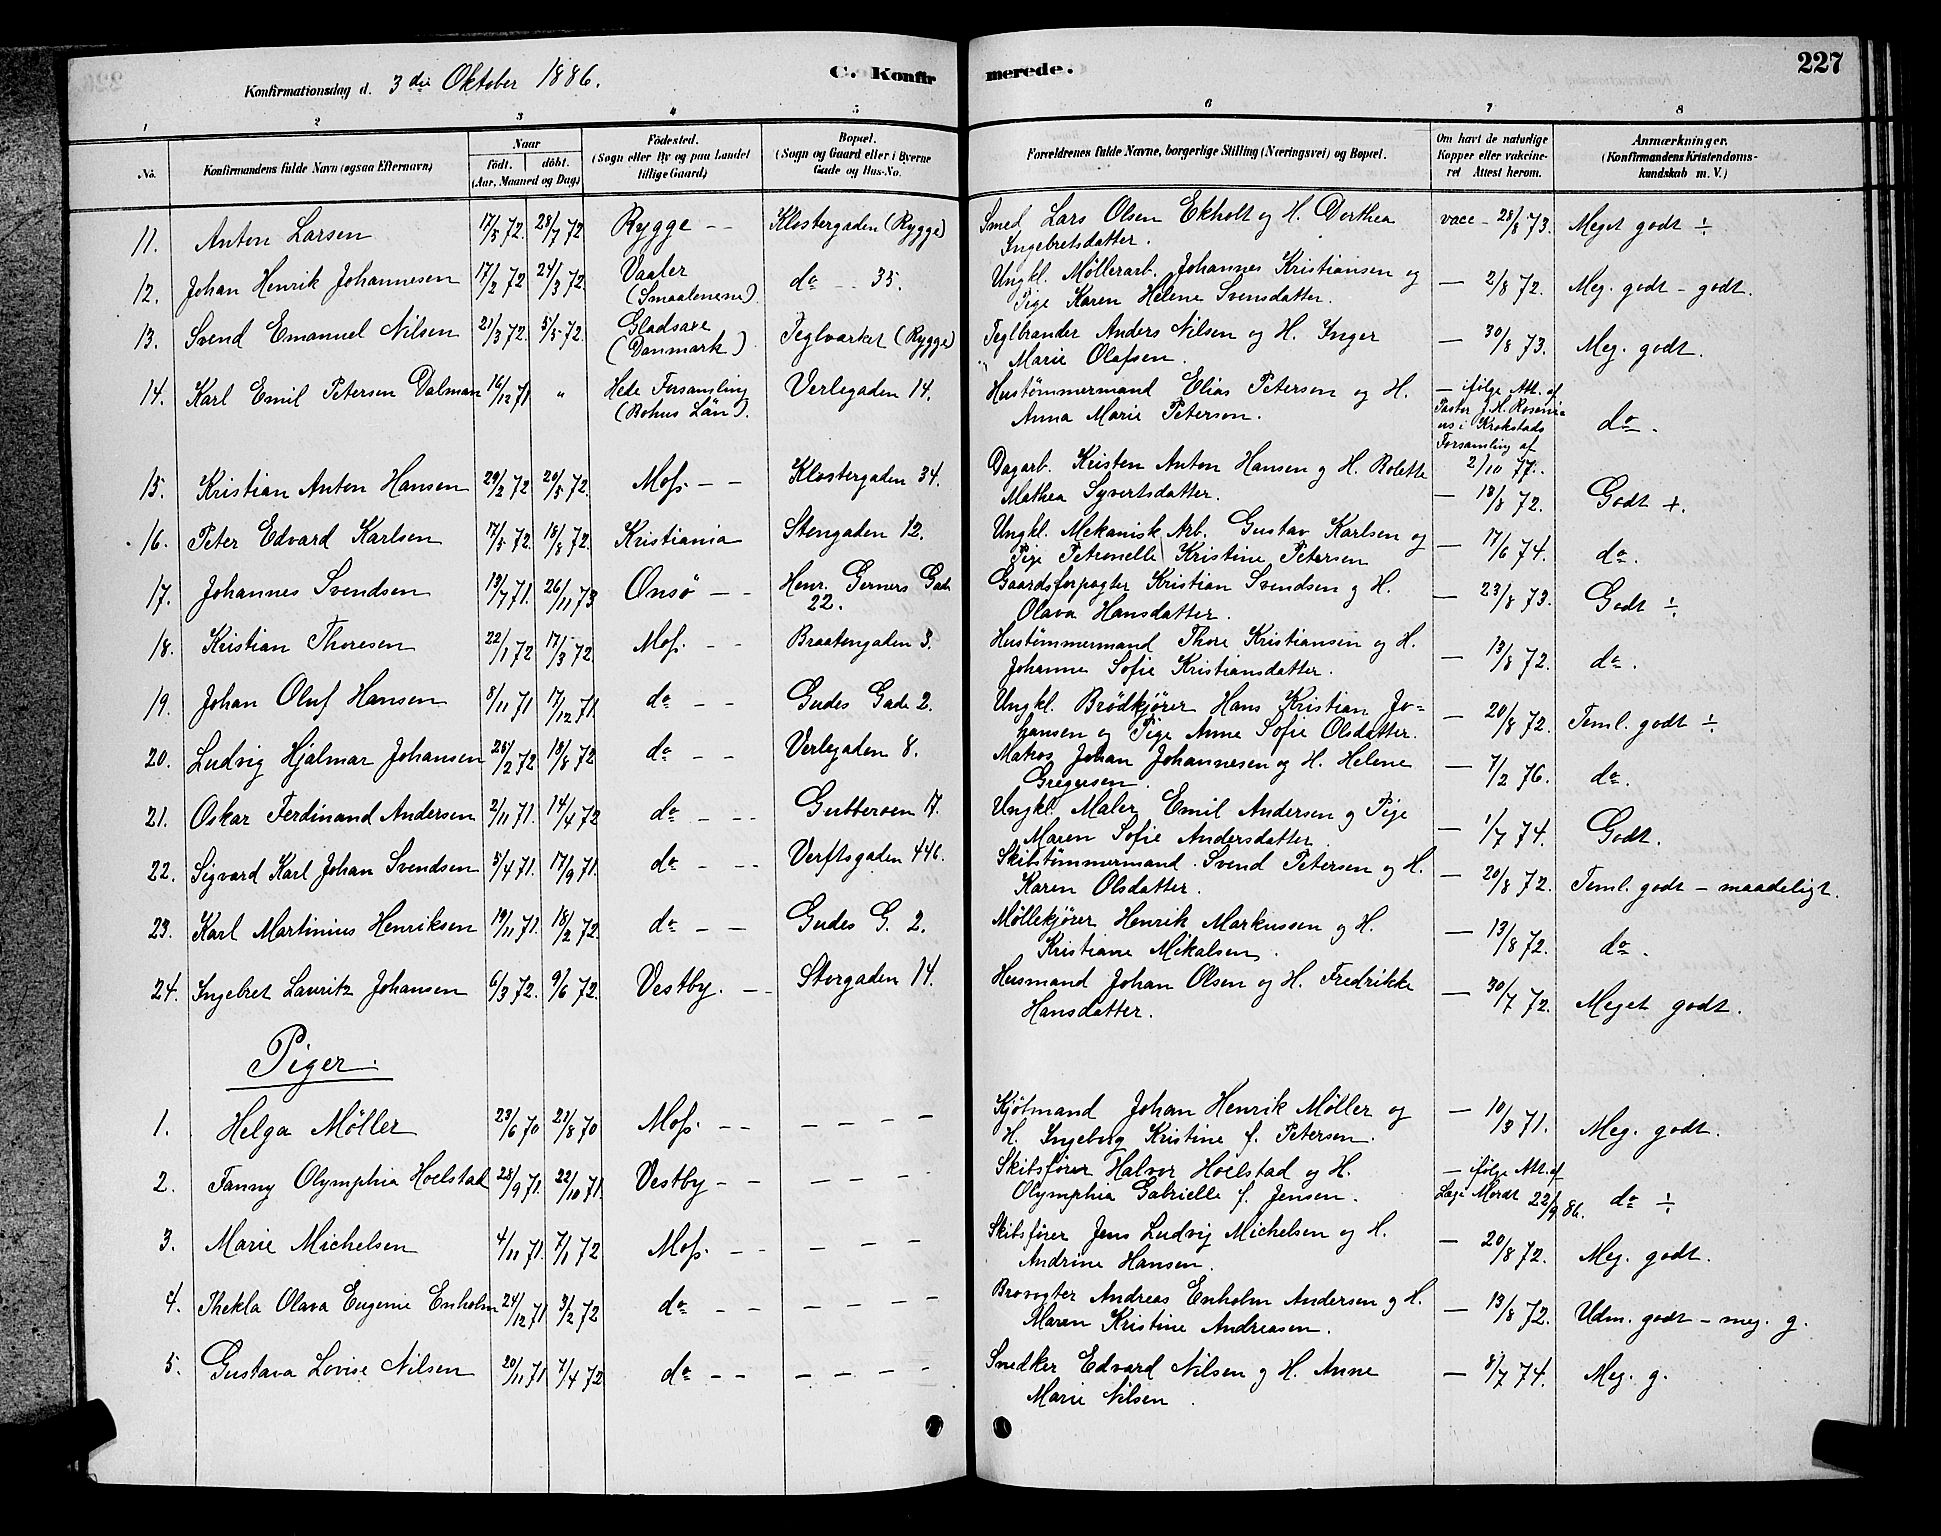 Konfirmationsdag d. 3die Oktober 1886. C. Konfirmerede. 227
1 2 3 4 5 6 7 8
No. Konfirmandens fulde Navn (ogsaa Efternavn) Naar født. døbt. (Aar, Maaned og Dag) Fødested. (Sogn eller By og paa Landet tillige Gaard) Bopæl. (Sogn og Gaard eller i Byerne Gade og Hus-No. Forældrenes fulde Navne, borgerlige Stilling (Næringsvei) og Bopæl. Om havt de naturlige Kopper eller vakcineret Attest herom. Anmærkninger. (Konfirmandens Kristendomskundskab m. V.)
11. Anton Larsen 17/5 72. 28/7 72 Rygge - - Klostergaden (Rygge) Smed Lars Olsen Ekholt og H. Dorthea vacc - 28/8 73. Meget godt ÷
Ingebretsdatter.
12. Johan Henrik Johannesen 17/2 72 24/3 72. Vaaler do - - 35. Ungkl. Møllerarb. Johannes Kristiansen og — 2/8 72. Meg. godt - godt.
(Smaalenene). Pige Karen Helene Svensdatter.
13. Svend Emanuel Nilsen 21/3 72. 5/5 72. Gladsaxe Teglværket (Rygge) Teglbrænder Anders Nilsen og H. Inger — 30/8 73. Meg. godt.
(Danmark) Marie Olafsen.
14. Karl Emil Petersen Dalman 16/12 71 " Hede Forsamling Verlegaden 14. Hustømmermand Elias Peterson og H. — ifølge Att. af
(Bohus Län). Anna Marie Peterson. Pastor J. H. Rosenius i Krokstads Forsamling af 2/10 77. do.
15. Kristian Anton Hansen 29/2 72 20/5 72. Moss. - - Klostergaden 34. Dagarb. Kristen Anton Hansen og H. Bolette — 13/8 72. Godt +.
Mathea Syvertsdatter.
16. Peter Edvard Karlsen 17/5 72. 18/8 72. Kristiania Stengaden 12. Ungkl. Mekanisk Arb. Gustav Karlsen og — 17/6 74. do.
Pige Petronelle Kristine Petersen
17. Johannes Svendsen 19/7 71. 26/11 73 Onsø - - Henr. Gerners Gade Gaardsforpagter Kristian Svendsen og H. — 23/8 73. Godt ÷
22. Olava Hansdatter.
18. Kristian Thoresen 22/1 72 17/3 72. Moss. - - Braatengaden 3. Hustømmermand Thore Kristiansen og H. — 13/8 72. do.
Johanne Sofie Kristiansdatter.
19. Johan Oluf Hansen 8/11 71 17/12 71. do - - Gudes Gade 2. Ungkl. Brødkjører Hans Kristian Jo- — 20/8 72. Teml. godt ÷
hansen og Pige Anne Sofie Olsdatter.
20. Ludvig Hjalmar Johansen 28/2 72 18/8 72 do - - Verlegaden 8. Matros Johan Johannesen og H. Helene — 7/2 76. do.
Gregersen.
21. Oskar Ferdinand Andersen 2/11 71. 14/4 72 do - - Gubberoen 17. Ungkl. Maler Emil Andersen og Pige — 1/7 74. Godt.
Maren Sofie Andersdatter
22. Sigvard Karl Johan Svendsen 3/4 71. 17/9 71. do - - Verftsgaden 446. Skibstømmermand Svend Petersen og H. — 20/8 72. Teml. godt - maadeligt.
Karen Olsdatter.
23. Karl Martinius Henriksen 19/11 71. 18/2 72. do - - Gudes G. 2. Møllekjører Henrik Markussen og H. — 13/8 72. do.
Kristiane Mikalsen.
24. Ingebret Lauritz Johansen 6/3 72. 9/6 72. Vestby. - - Storgaden 14. Husmand Johan Olsen og H. Fredrikke — 30/7 72. Meget godt.
Hansdatter.
Piger.
1. Helga Møller 23/6 70 21/8 70 Moss. - - - - - - Kjøbmand Johan Henrik Møller og — 10/3 71. Meg. godt.
H. Ingeborg Kristine f. Petersen.
2. Fanny Olymphia Hoelstad 28/9 71. 22/10 71. Vestby - - - - - - Skibsfører Halvor Hoelstad og H. — ifølge Att. af
Olymphia Gabrielle f. Jensen. Læge 22/9 86. do ÷
3. Marie Michelsen 4/11 71. 7/1 72 Moss. - - - - - Skibsfører Jens Ludvig Michelsen og H. — 20/8 72. Meg. godt.
Andrine Hansen.
4. Thekla Olava Eugenie Enholm 24/12 71 3/2 72 do - - - - - - Brovogter Andreas Enholm Andersen og H. — 13/8 72. Udm. godt - meg. g.
Maren Kristine Andreasen.
5. Gustava Lovise Nilsen 20/11 71 7/4 72 do - - - - - - Snedker Edvard Nilsen og H. Anne — 8/7 74. Meg. g.
Marie Nilsen.